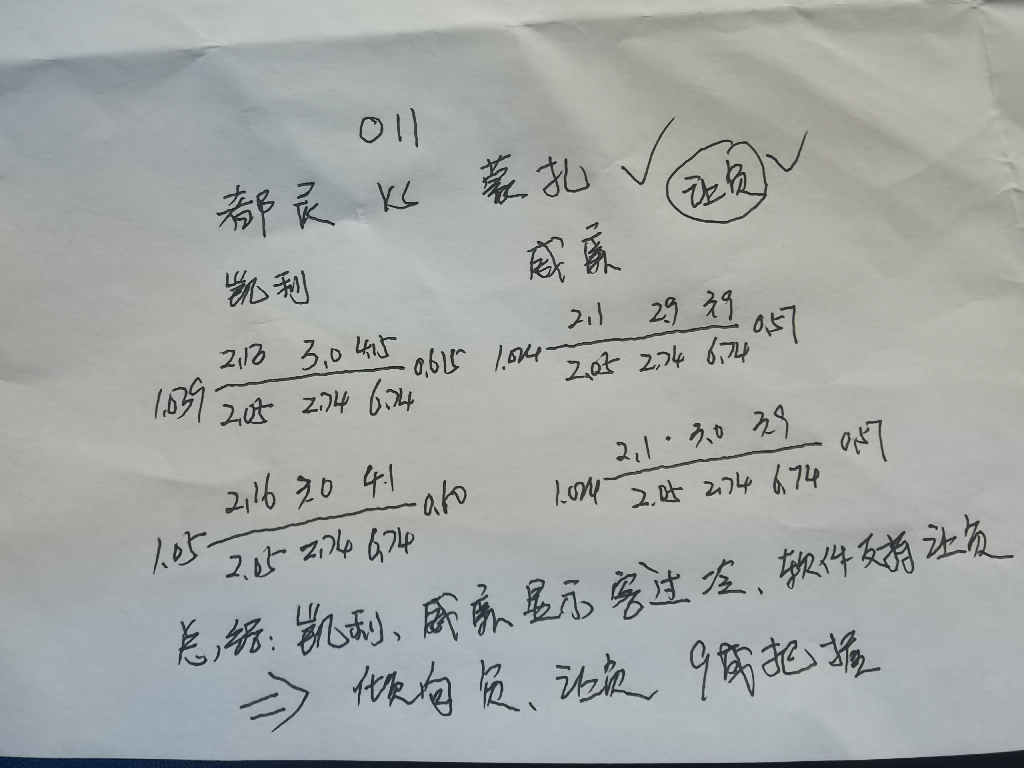 011
都灵 VS 蒙扎 ✓ 让负 ✓
凯利 威廉
2.13 3.0 4.15
1.039 0.615
2.05 2.74 6.74
2.1 2.9 3.9
1.024 0.57
2.05 2.74 6.74
2.16 3.0 4.1
1.05 0.60
2.05 2.74 6.74
2.1 · 3.0 3.9
1.024 0.57
2.05 2.74 6.74
总结:凯利、威廉显示客过冷、软件支持让负
⇒ 倾向负、让负 9成把握